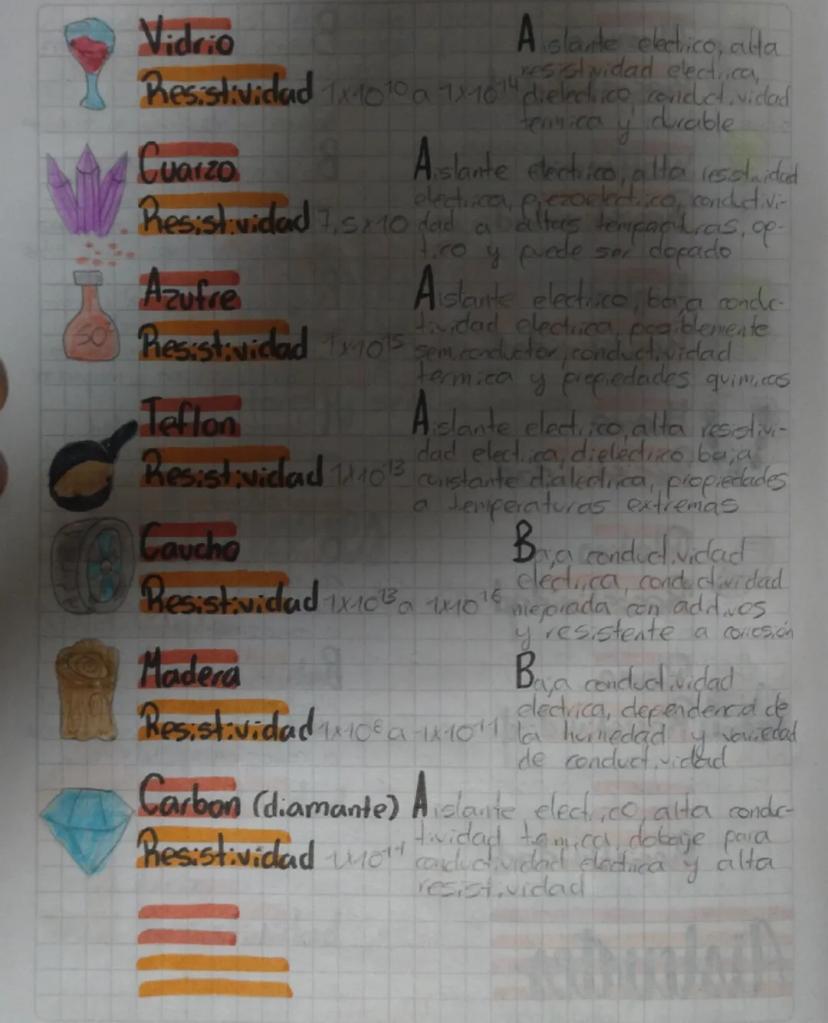 Vidrio
Resistividad 1x10¹⁰ a 1x10¹⁴
Aislante electrico, alta
resistividad electrica,
dielectrico, conductividad
termica y durable
Cuarzo
Resistividad 7,5x10
Aislante electrico, alta resistividad
electrica, piezoelectrico, conductivi-
dad a altas temperaturas, op-
tico y puede ser dopado
Azufre
SO²
Resistividad 1x10¹⁵
Aislante electrico, baja conduc-
tividad electrica, posiblemente
semiconductor, conductividad
termica y propiedades quimicas
Teflon
Resistividad 1x10¹³
Aislante electrico, alta resistivi-
dad electrica, dielectrico, baja
constante dialectrica, propiedades
a temperaturas extremas
Caucho
Resistividad 1x10¹³ a 1x10¹⁶
Baja conductividad
electrica, conductividad
mejorada con aditivos
y resistente a corrosión
Madera
Resistividad 1x10⁸ a 1x10¹¹
Baja conductividad
electrica, dependencia de
la humedad y variedad
de conductividad
Carbon (diamante)
Resistividad 1x10¹¹
Aislante electrico, alta conduc-
tividad termica, dobaje para
conductividad electrica y alta
resistividad